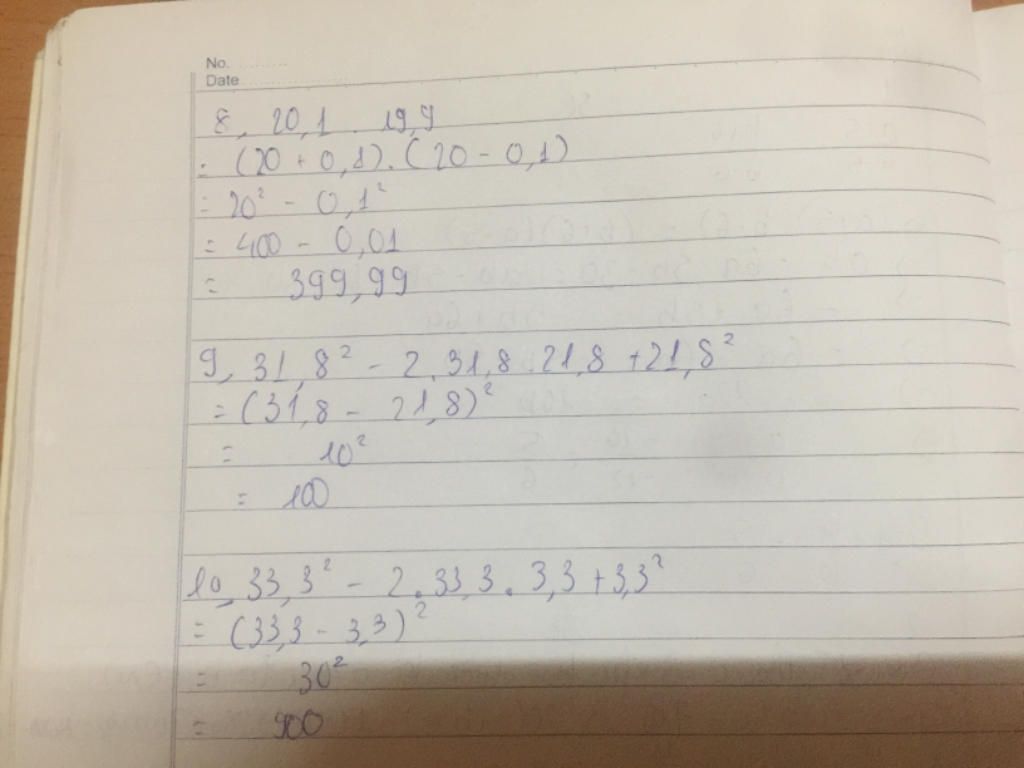 No.
Date
8, 20,1 . 19,9
= (20 + 0,1).(20 - 0,1)
= 20² - 0,1²
= 400 - 0,01
= 399,99
9, 31,8² - 2.31,8.21,8 + 21,8²
= (31,8 - 21,8)²
= 10²
= 100
10, 33,3² - 2.33,3.3,3 + 3,3²
= (33,3 - 3,3)²
= 30²
= 900